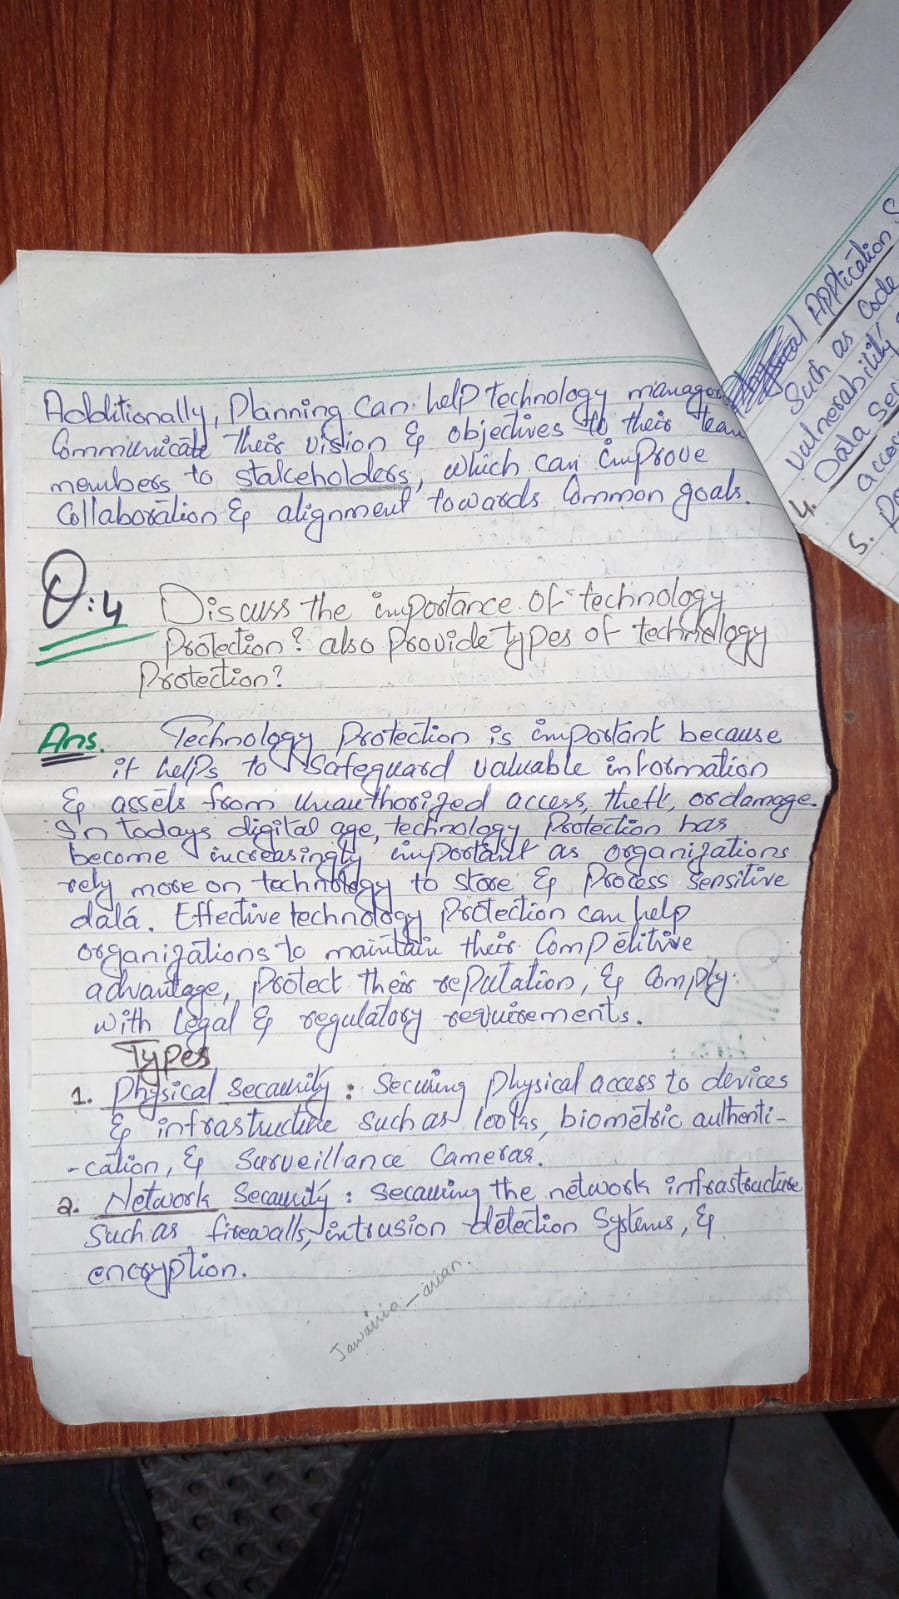 Additionally, Planning Can help technology manager
Communicate their vision & objectives to their team
members to stakeholders, which can improve
Collaboration & alignment towards Common goals.
Q:4 Discuss the importance of technology
Protection? also Provide types of technology
Protection?
Ans. Technology Protection is important because
it helps to Safeguard valuable information
& assets from unauthorized access, theft, or damage.
In todays digital age, technology Protection has
become increasingly important as organizations
rely more on technology to store & Process Sensitive
data. Effective technology Protection can help
organizations to maintain their Competitive
advantage, Protect their reputation, & Comply
with legal & regulatory requirements.
Types
1. Physical Security : Securing Physical access to devices
& infrastructure such as locks, biometric authenti-
-cation, & Surveillance Cameras.
2. Network Security : Securing the network infrastructure
Such as firewalls, intrusion detection Systems, &
encryption.
Jawairia_arian.
Application S
Such as Code
vulnerability
4. Data Sec
acces
5.